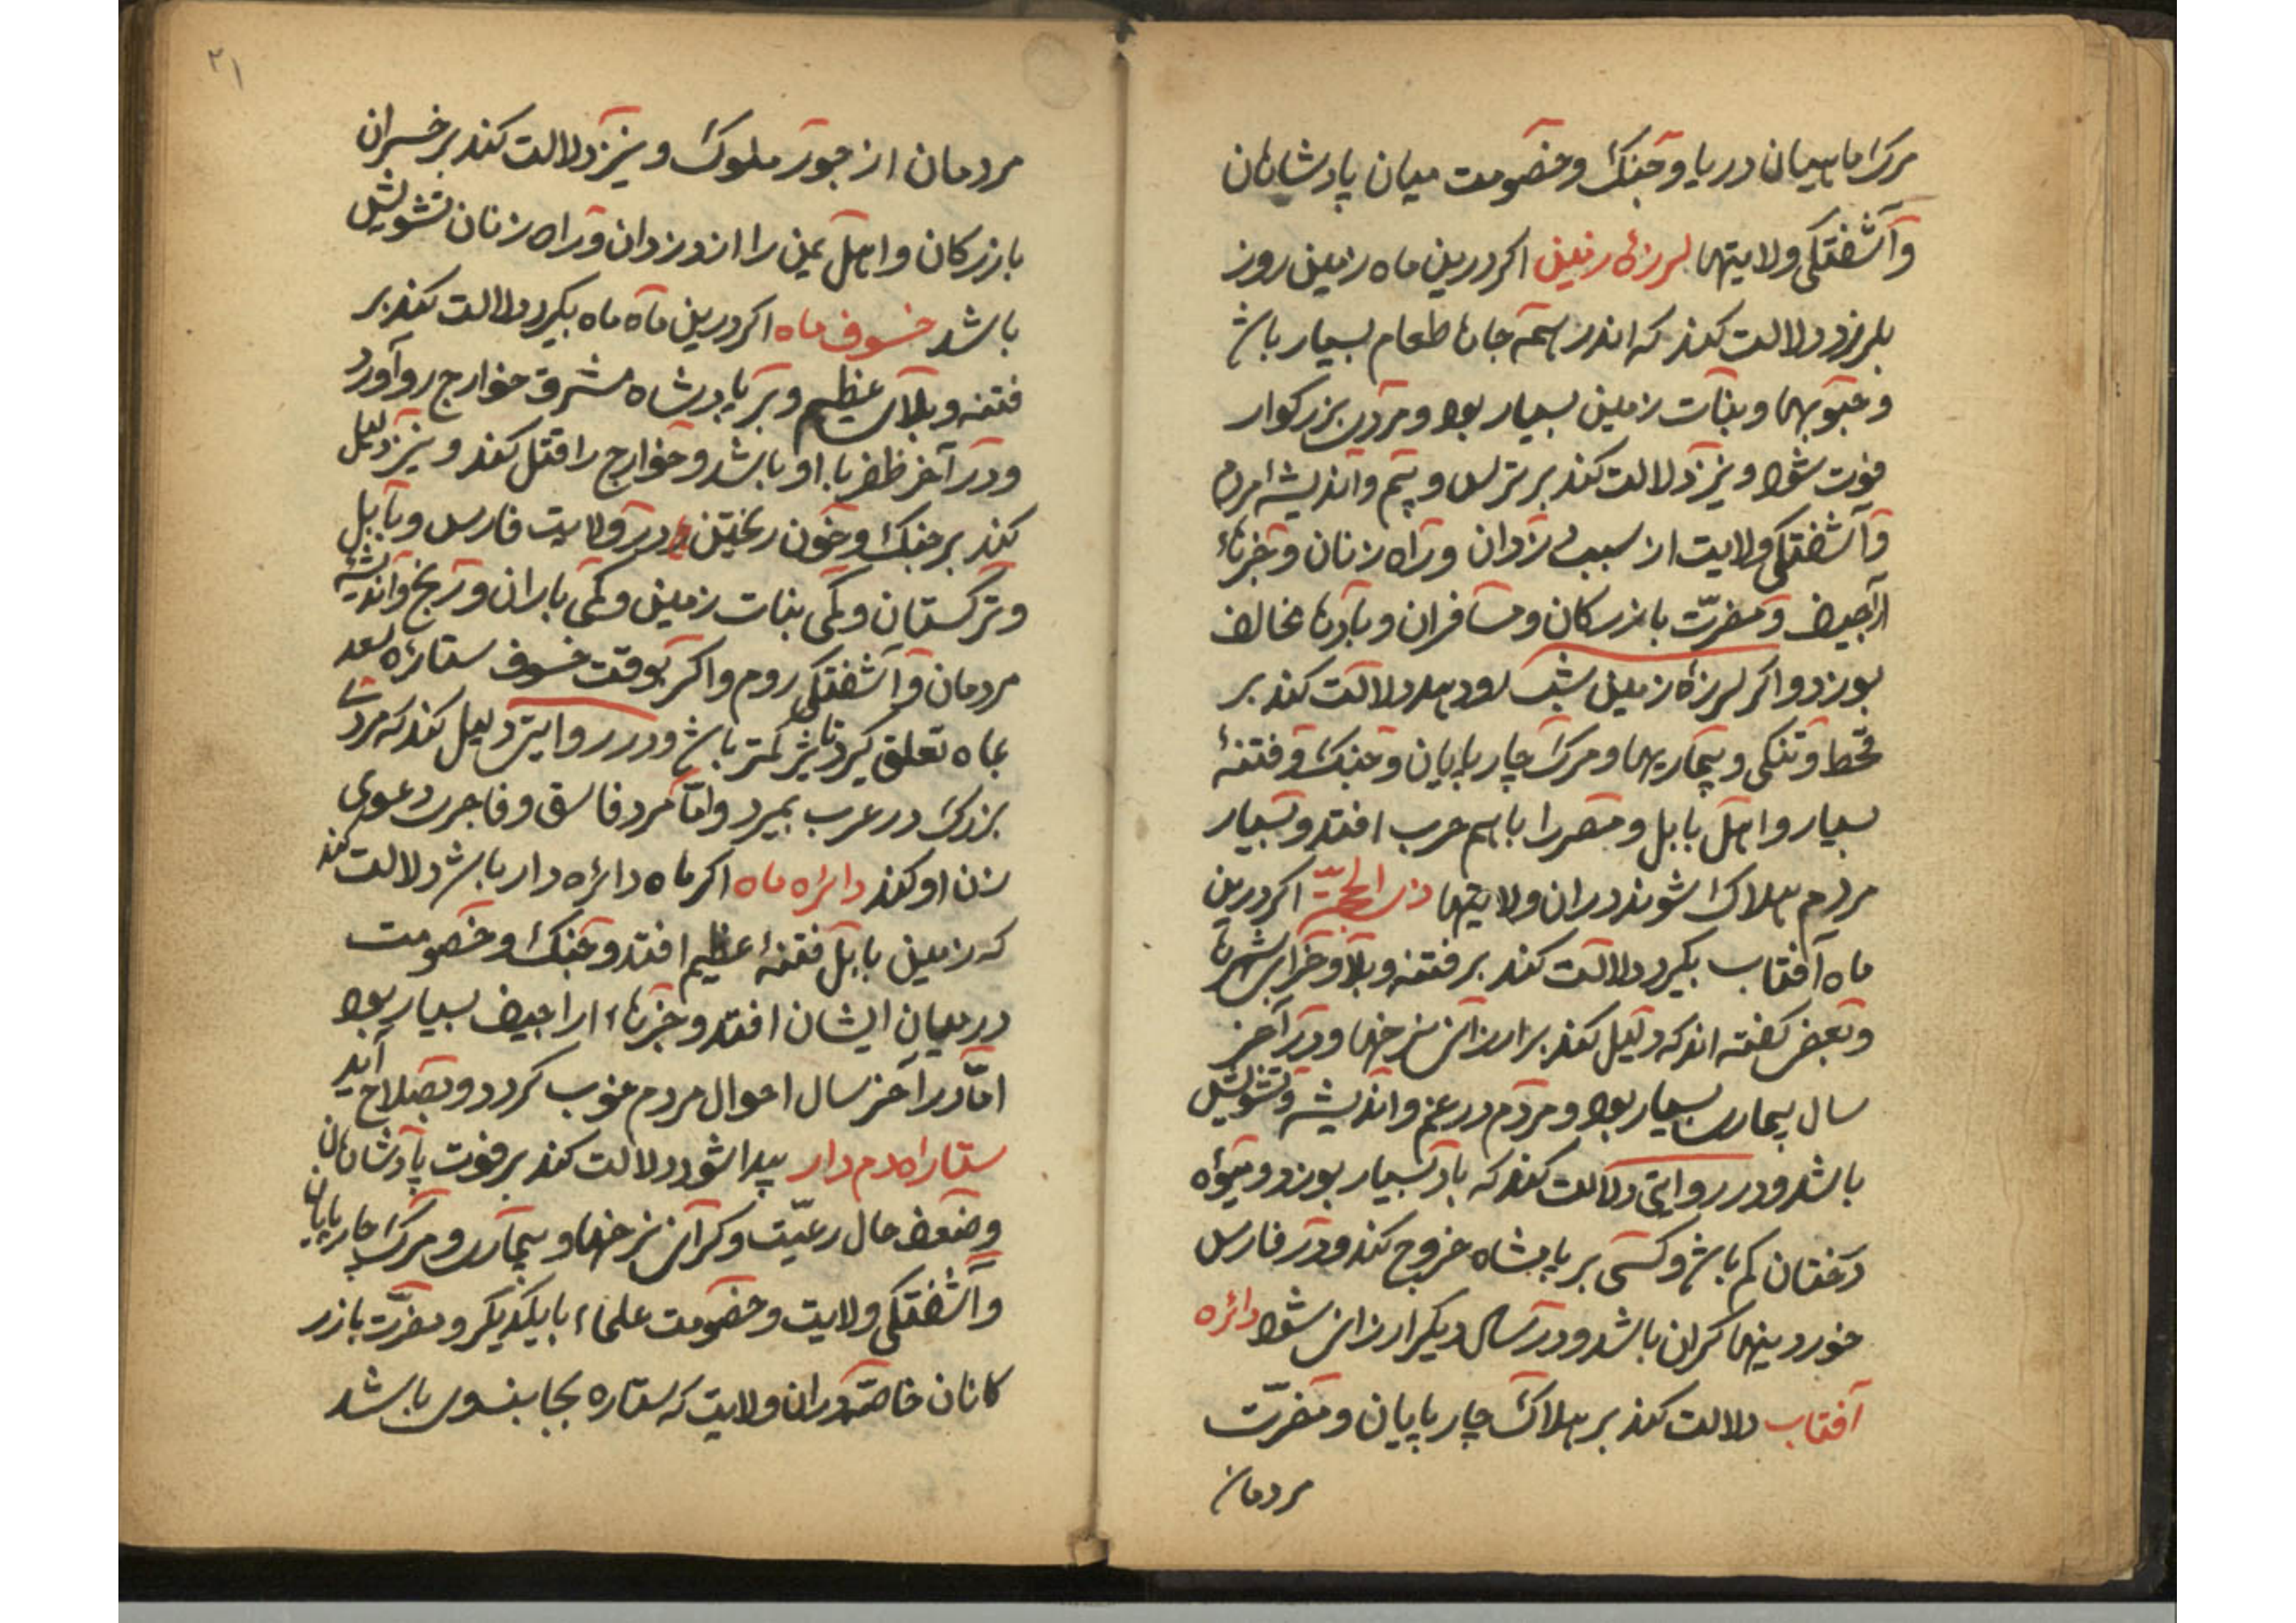 مرک ماهیان دریا و جنک و خصومت میان پادشاهان
و آشفتکی ولایتها لرزۀ زمین اکر درین ماه زمین روز
بلرزد دلالت کند که اندر همه جاها طعام بسیار باشد
و حبوبها و بنات زمین بسیار بود و مردی بزرکوار
فوت شود و نیز دلالت کند بر ترس و بیم و اندیشۀ مردم
و آشفتکی ولایت از سبب دزدان و راه زنان و خبرهاء
اراجیف و مضرّت بازرکان و مسافران و بادها مخالف
بوزد و اکر لرزۀ زمین شب بود دلالت کند بر
قحط و تنکی و بیماریها و مرک چارپایان و جنک و فتنۀ
بسیار و اهل بابل و مصر را باهم حرب افتد و بسیار
مردم هلاک شوند در ان ولایتها ذی الحجّة اکر درین
ماه آفتاب بکیرد دلالت کند بر فتنه و بلا و خرابی شهرها
و بعضی کفته اند که دلیل کند بر ارزانی نرخها و در آخر
سال بیماری بسیار بود و مردم در غم و اندیشه و تشویش
باشد و در روایتی دلالت کند که باد بسیار بوزد و میوۀ
درختان کم باشد و کسی بر پادشاه خروج کند و در فارس
خوردینها کران باشد و در سال دیکر ارزانی شود دائره
آفتاب دلالت کند بر هلاک چارپایان و مضرّت
مردمان
۲۱
مردمان از جور ملوک و نیز دلالت کند بر خسران
بازرکان و اهل یمن را از دزدان و راه زنان تشویش
باشد خسوف ماه اکر درین ماه ماه بکیرد دلالت کند بر
فتنه و بلای عظیم و بر پادشاه مشرق خوارج رو آورد
و در آخر ظفر با او باشد و خوارج را قتل کند و نیز دلیل
کند بر جنک و خون ریختن در ولایت فارس و بابل
و ترکستان و کمی بنات زمین و کمی باران و رنج و اندیشه
مردمان و آشفتکی روم و اکر بوقت خسوف ستارۀ سعد
بماه تعلق کیرد تاثیر کمتر باشد و در روایتی دلیل کند که مردی
بزرک در عرب بمیرد و امّا مرد فاسق و فاجری دعوی
زن او کند دائره ماه اکر ماه دائره دار باشد دلالت کند
که زمین بابل فتنۀ عظیم افتد و جنک و خصومت
در میان ایشان افتد و خبرهاء اراجیف بسیار بود
امّا در آخر سال احوال مردم خوب کردد و بصلاح آید
ستاراه دم دار پیدا شود دلالت کند بر فوت پادشاهان
و ضعف حال رعیّت و کرانی نرخها و بیماری و مرک چارپایان
و آشفتکی ولایت و خصومت علماء با یکدیکر و مضرّت بازر
کانان خاصّه در ان ولایت که ستاره بجانب وی باشد